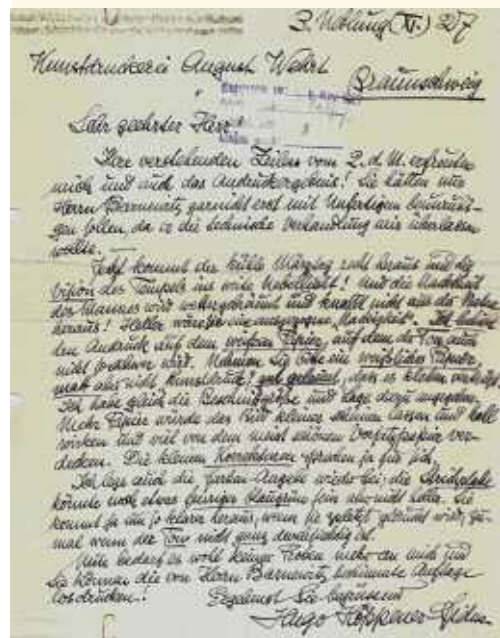 3. Nebelung (XI.) 27
Kunstdruckerei August Wehrt
Braunschweig
Sehr geehrter Herr!
Ihre verstehenden Zeilen vom 2. d. M. erfreuten
mich und auch das Andruckergebnis! Sie hätten nur
Herrn Barnewitz garnicht erst mit Unfertigem
sollen, da er die technische Verhandlung mir überlassen
wollte. —
Jetzt kommt der kühle Märztag recht heraus und die
Vision des Tempels ins weite Nebelleicht! Und die Nacktheit
des Mannes wird und knallt nicht aus der
heraus! Heller wäre sie eine ausgezogene „Nacktigkeit“. Ich
den Andruck auf dem weißen Papier, auf dem der Ton auch
nicht so schwer wird. Nehmen Sie bitte ein weißliches Papier
matt also nicht Kunstdruck! gut geleimt, dass es
Ich habe gleich die Beschnittgröße und Lage dazu angegeben.
Mehr Papier würde das Bild kleiner scheinen lassen und kalt
wirken und viel von dem meist schönen ver-
decken. Die kleinen Korrekturen sprechen ja für sich.
Ich lege auch die zarten Angaben wieder bei; die Strichplatte
könnte noch etwas blaugrün sein also nicht Sie
kommt ja um so klarer heraus, wenn sie zuletzt gedruckt wird, zu-
mal wenn der Ton nicht ganz ist.
Nun bedarf es wohl keiner Proben mehr an mich und
Sie können die von Herrn Barnewitz bestimmte Auflage
losdrucken!
Ergebenst Sie begrüssend
Hugo Höppener-Fidus.